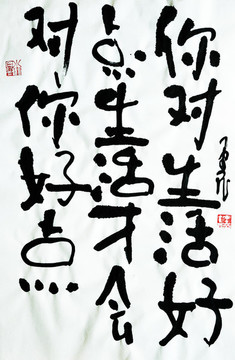 你对生活好
点生活才会
对你好点